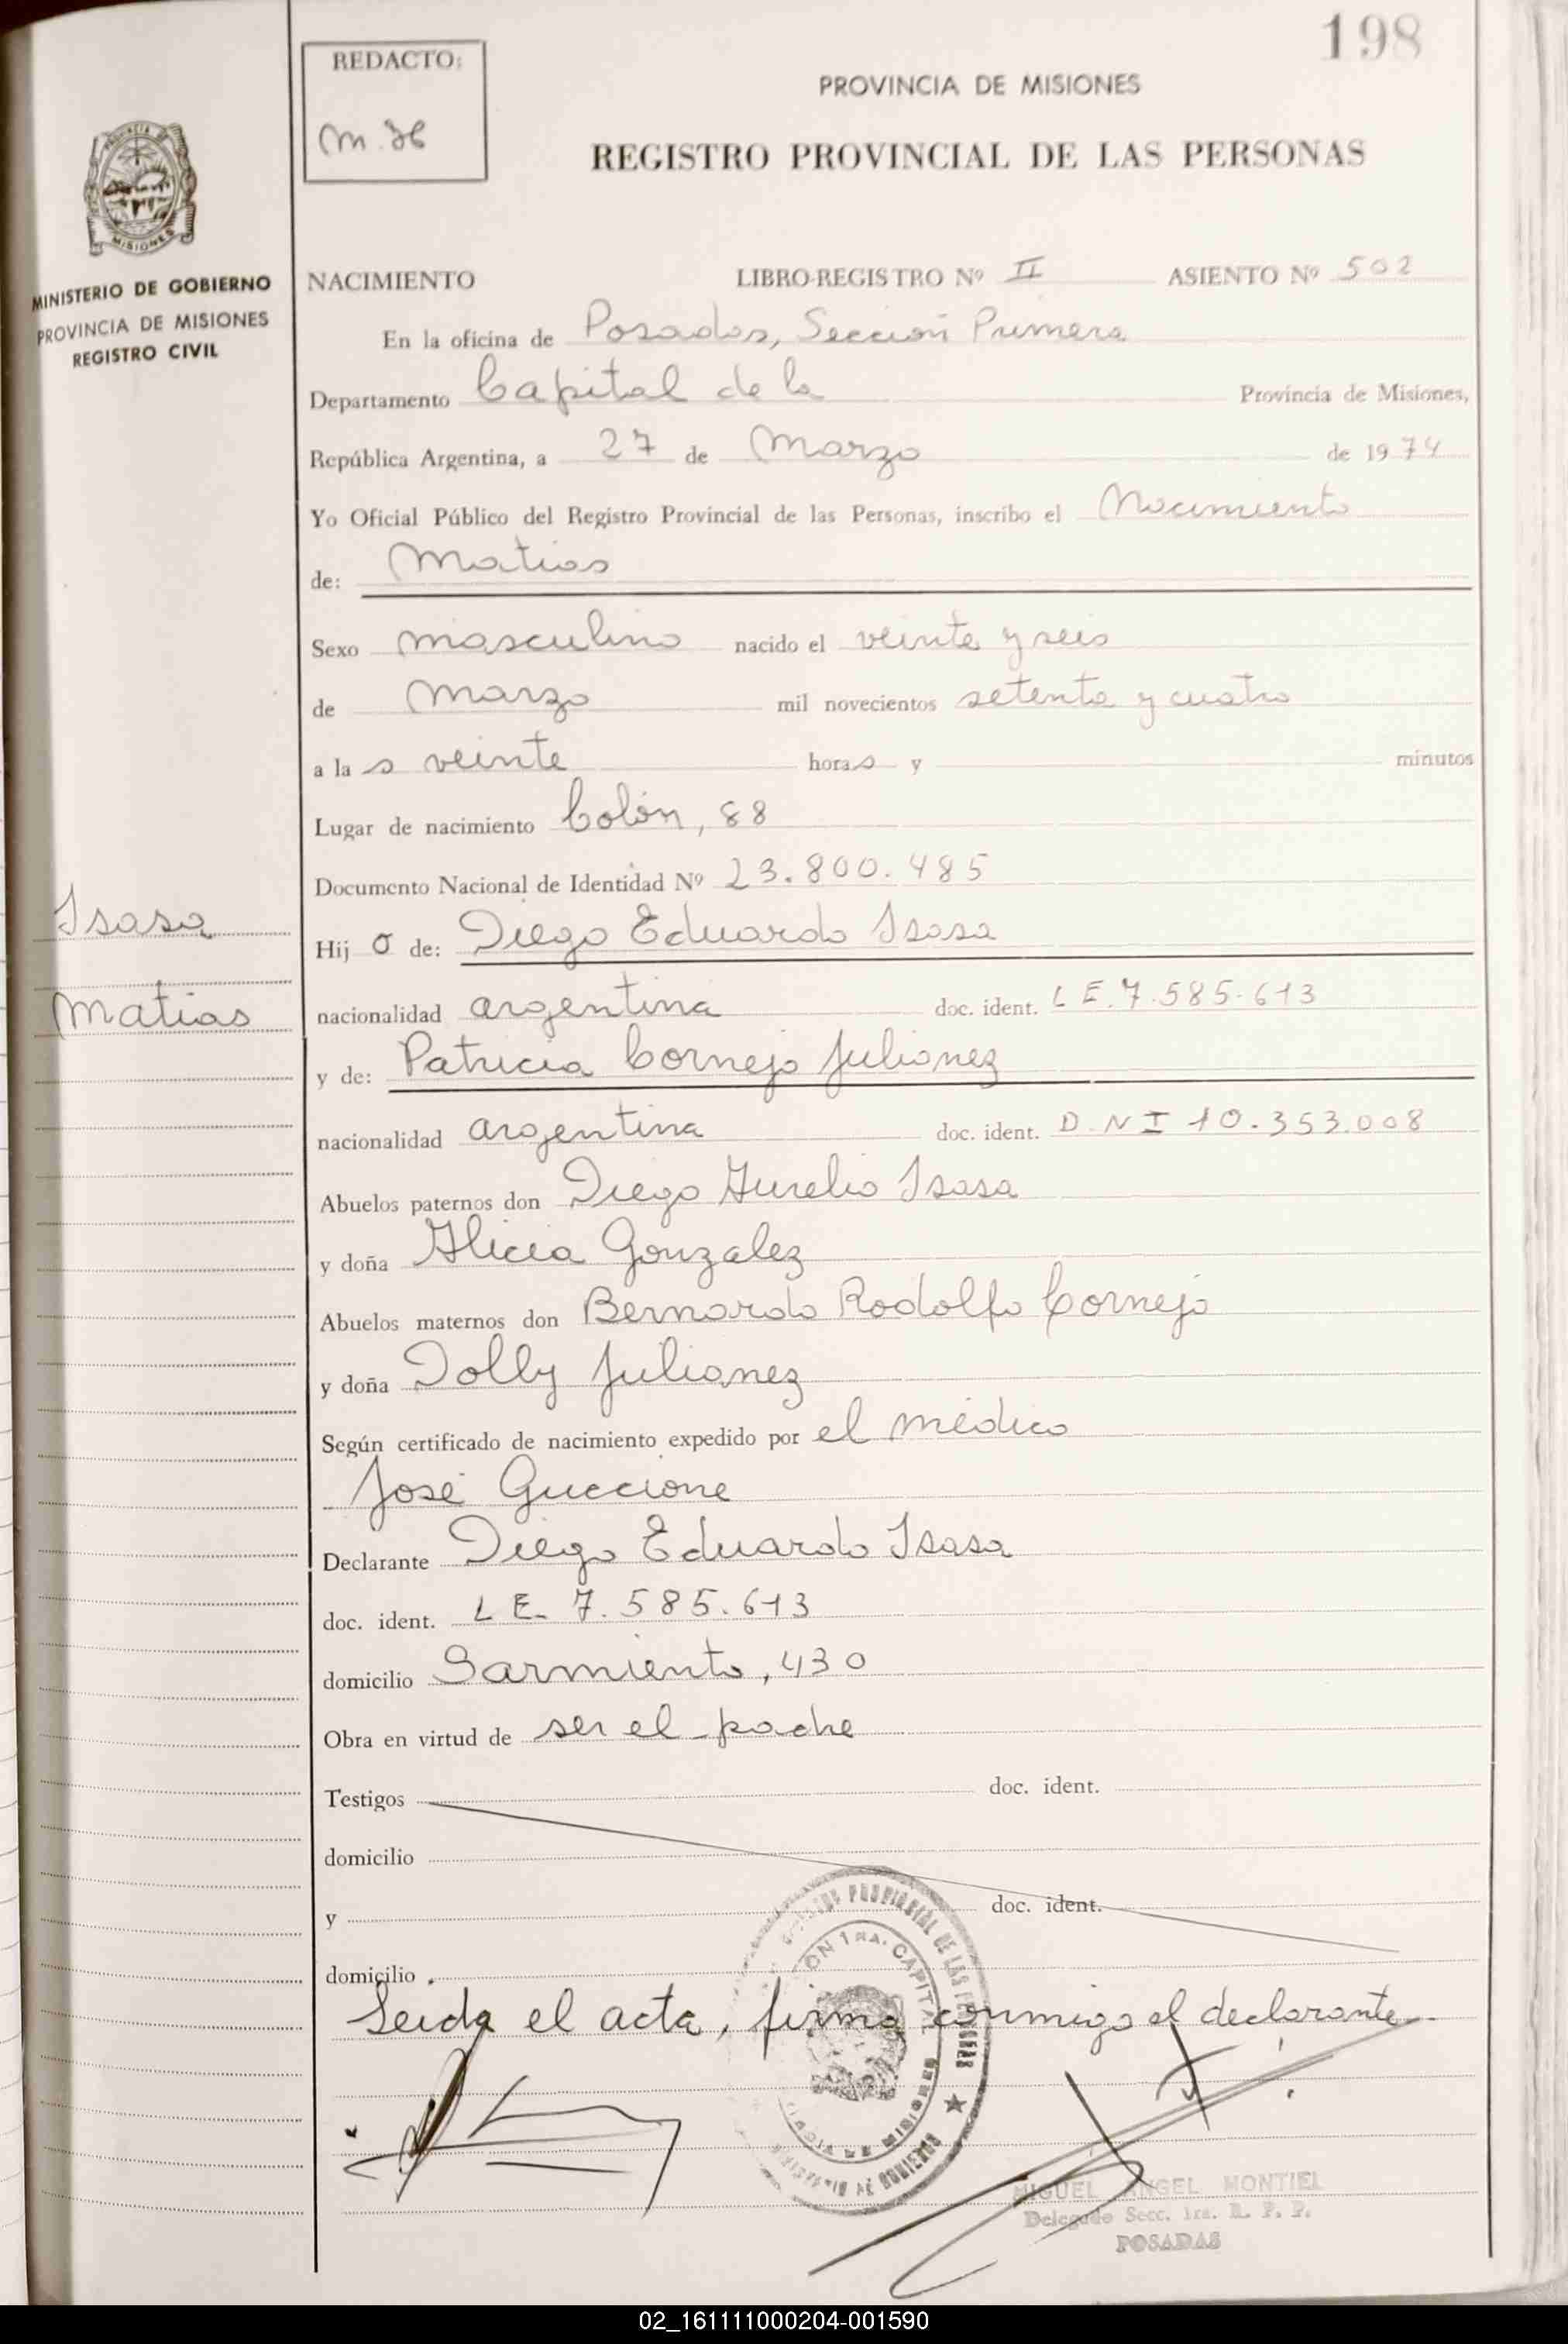 198
REDACTO:
PROVINCIA DE MISIONES
REGISTRO PROVINCIAL DE LAS PERSONAS
MISIONES
MINISTERIO DE GOBIERNO
PROVINCIA DE MISIONES
REGISTRO CIVIL
NACIMIENTO LIBRO-REGISTRO Nº II ASIENTO Nº 502
En la oficina de Posadas, Sección Primera
Departamento Capital de la Provincia de Misiones,
República Argentina, a 27 de Marzo de 1974
Yo Oficial Público del Registro Provincial de las Personas, inscribo el Nacimiento
de: Matias
Sexo masculino nacido el veinte y seis
de Marzo mil novecientos setenta y cuatro
a la s veinte horas y minutos
Lugar de nacimiento Colón, 88
Documento Nacional de Identidad Nº 23.800.485
Isasa
Matias
Hij o de: Diego Eduardo Isasa
nacionalidad argentina doc. ident. L E. 7.585.613
y de: Patricia Cornejo Julianez
nacionalidad argentina doc. ident. D.N I 10.353.008
Abuelos paternos don Diego Aurelio Isasa
y doña Alicia Gonzalez
Abuelos maternos don Bernardo Rodolfo Cornejo
y doña Dolly Julianez
Según certificado de nacimiento expedido por el médico
José Guccione
Declarante Diego Eduardo Isasa
doc. ident. L E. 7.585.613
domicilio Sarmiento, 430
Obra en virtud de ser el padre
Testigos doc. ident.
domicilio
y doc. ident.
domicilio
Leida el acta, firma conmigo el declarante.
MIGUEL ANGEL MONTIEL
Delegado Secc. 1ra. R. P. P.
POSADAS
02_161111000204-001590